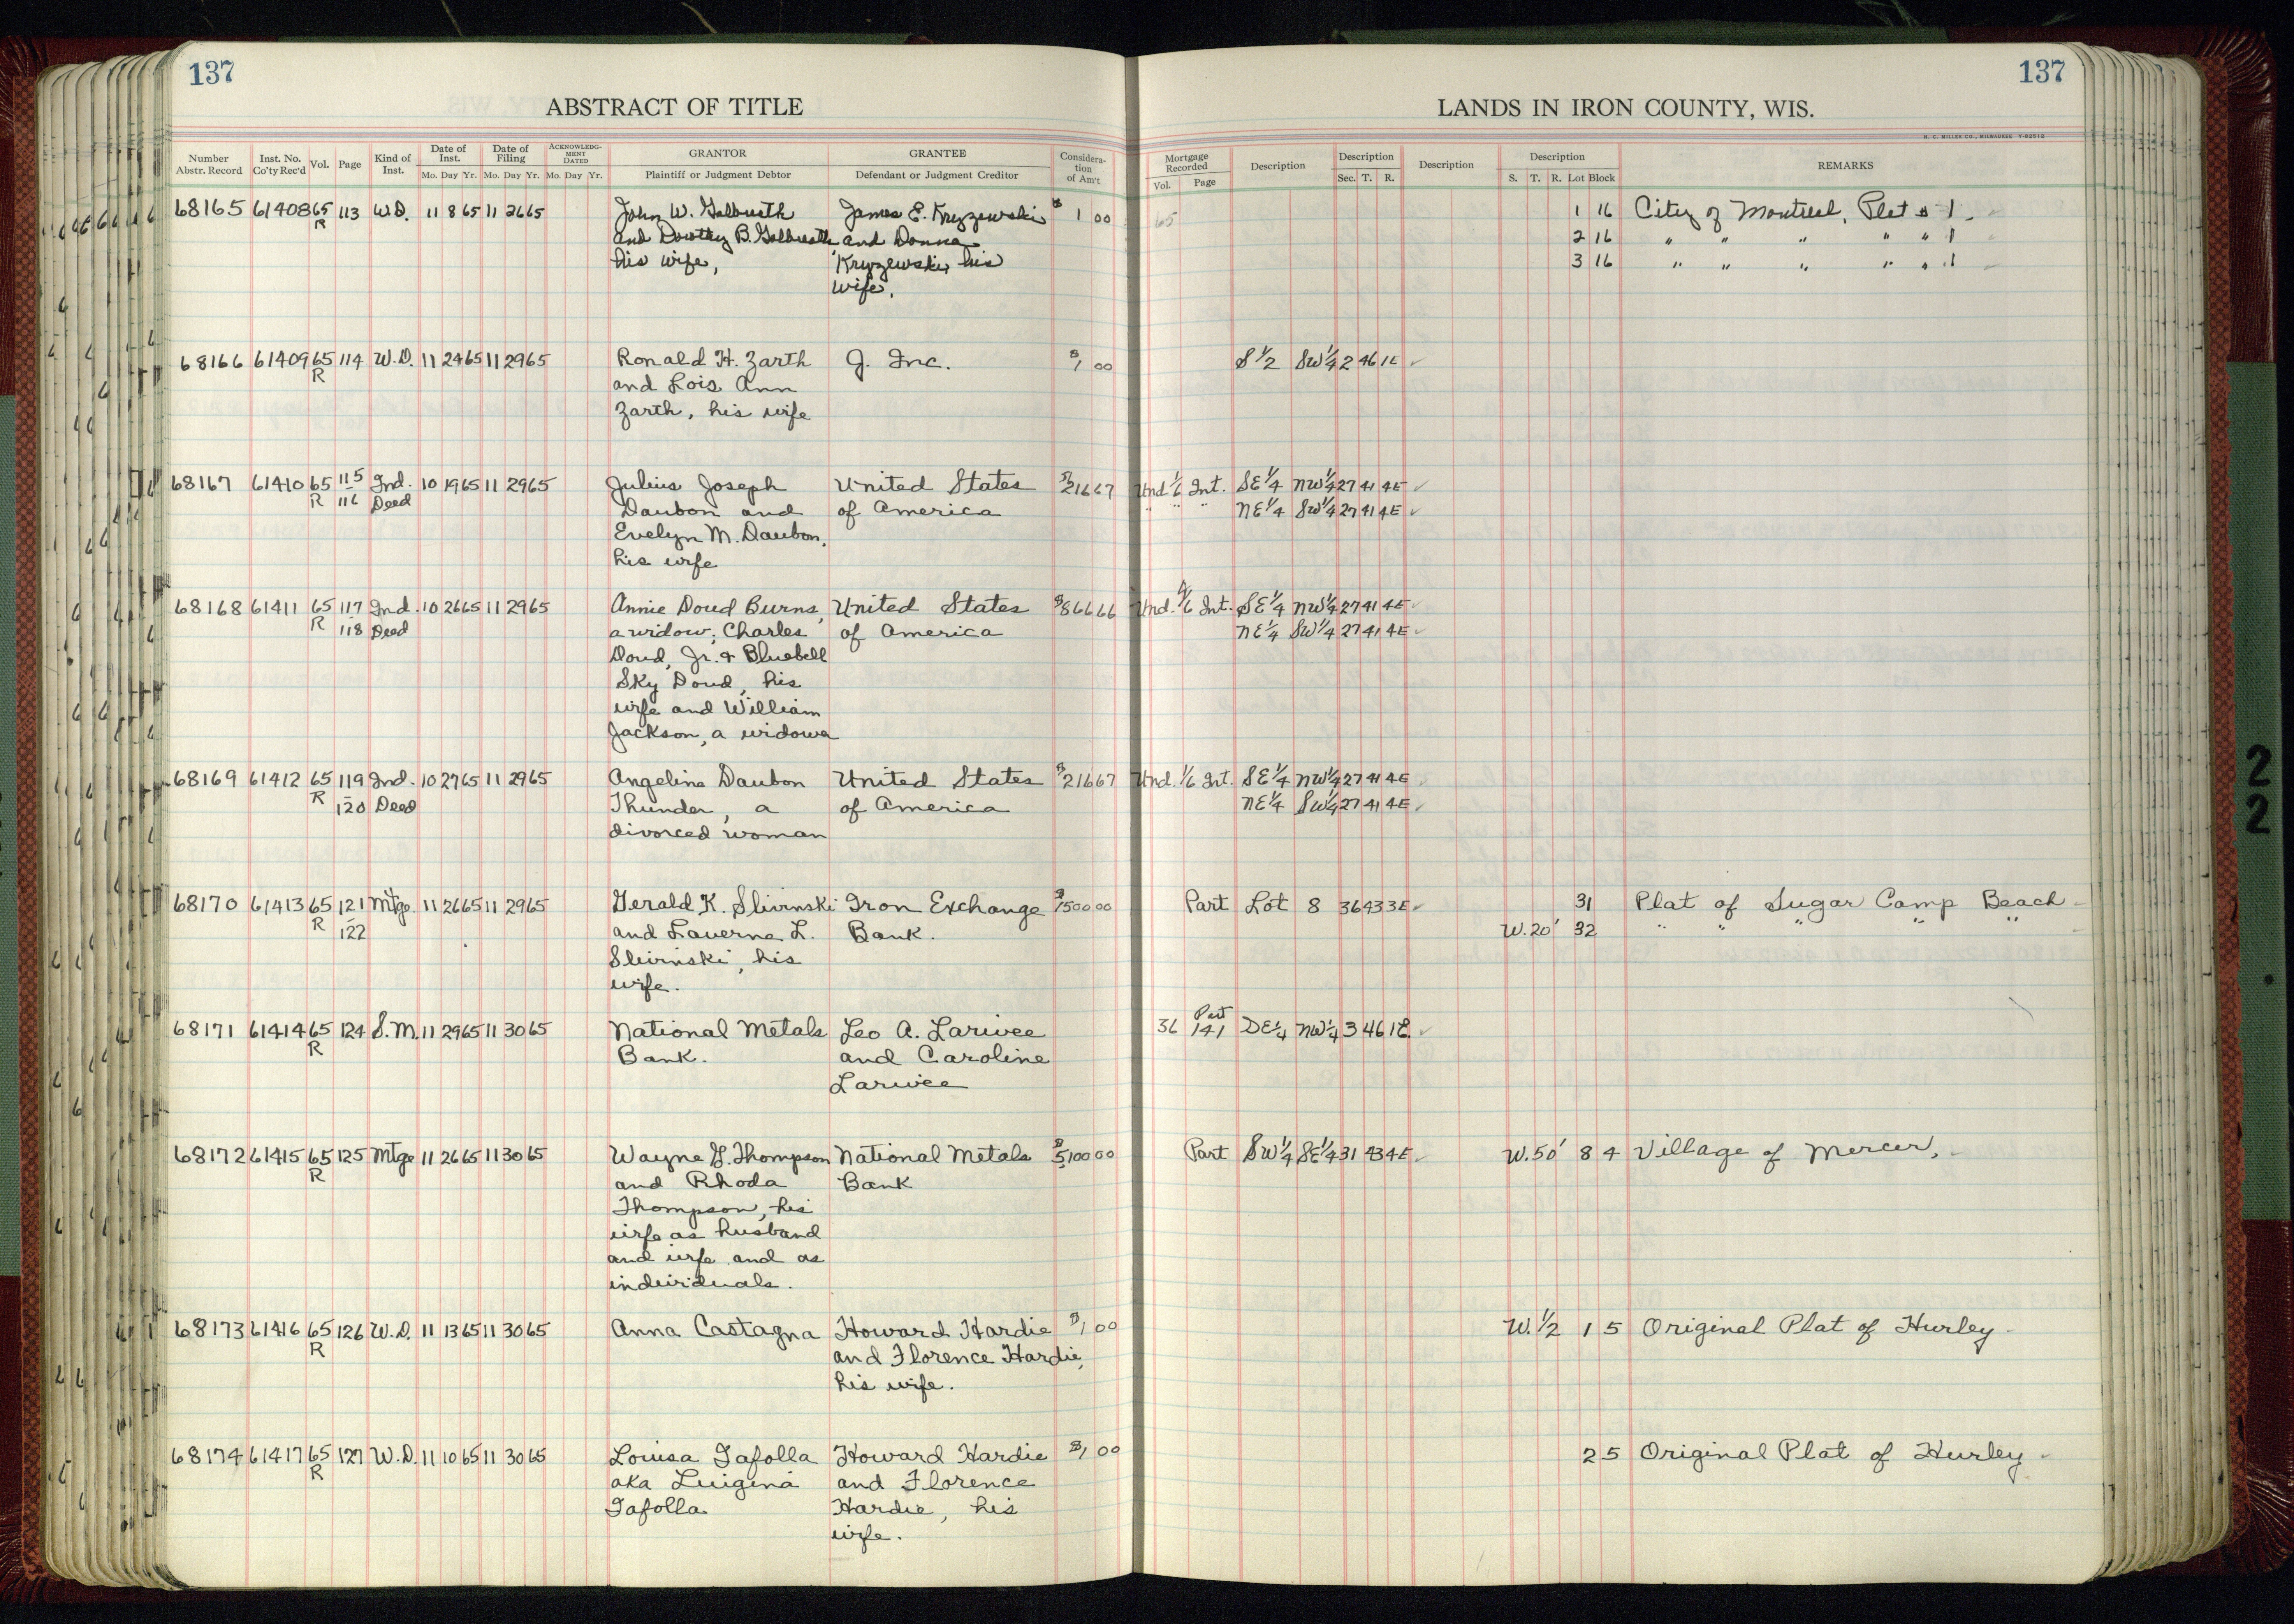 137
ABSTRACT OF TITLE
Number Abstr. Record Inst. No. Co'ty Rec'd Vol. Page Kind of Inst. Date of Inst. Mo. Day Yr. Date of Filing Mo. Day Yr. ACKNOWLEDGMENT DATED Mo. Day Yr. GRANTOR Plaintiff or Judgment Debtor GRANTEE Defendant or Judgment Creditor Consideration of Am't
137
LANDS IN IRON COUNTY, WIS.
H. C. MILLER CO., MILWAUKEE
Mortgage Recorded Vol. Page Description Description Sec. T. R. Description Description S. T. R. Lot Block REMARKS
68165 61408 65 113 W.D. 11 8 65 11 26 65 John W. Galbreath James E. Kryzewski $ 1 00 65 1 16 City of Montreal, Plat # 1
R and Dorothy B. Galbreath and Donna 2 16 " " " " " 1
his wife, Kryzewski, his 3 16 " " " " " 1
wife,
68166 61409 65 114 W.D. 11 24 65 11 29 65 Ronald H. Zarth J. Inc. $1 00 S 1/2 SW 1/4 2 46 1E ✓
R and Lois Ann
Zarth, his wife
68167 61410 65 115 Ind. 10 19 65 11 29 65 Julius Joseph United States $216 67 Und 1/6 Int. SE 1/4 NW 1/4 27 41 4E ✓
R 116 Deed Daubon and of America " " " NE 1/4 SW 1/4 27 41 4E ✓
Evelyn M. Daubon,
his wife
68168 61411 65 117 Ind. 10 26 65 11 29 65 Annie Doud Burns, United States $866 66 Und. 4/6 Int. SE 1/4 NW 1/4 27 41 4E ✓
R 118 Deed a widow; Charles of America NE 1/4 SW 1/4 27 41 4E ✓
Doud, Jr. + Bluebell
Sky Doud, his
wife and William
Jackson, a widowa
68169 61412 65 119 Ind. 10 27 65 11 29 65 Angeline Daubon United States $216 67 Und. 1/6 Int. SE 1/4 NW 1/4 27 41 4E ✓
R 120 Deed Thunder, a of America NE 1/4 SW 1/4 27 41 4E ✓
divorced woman
68170 61413 65 121 Mtge. 11 26 65 11 29 65 Gerald K. Slivinski Iron Exchange $1500 00 Part Lot 8 36 43 3E ✓ 31 Plat of Sugar Camp Beach
R 122 and Laverne L. Bank. W. 20' 32 " " " " "
Slivinski, his
wife.
68171 61414 65 124 S.M. 11 29 65 11 30 65 National Metals Leo A. Larivee 36 Part 141 SE 1/4 NW 1/4 3 46 1E ✓
R Bank. and Caroline
Larivee
68172 61415 65 125 Mtge 11 26 65 11 30 65 Wayne G. Thompson National Metals $5100 00 Part SW 1/4 SE 1/4 31 43 4E ✓ W. 50' 8 4 Village of Mercer,
R and Rhoda Bank
Thompson, his
wife as husband
and wife and as
individuals.
68173 61416 65 126 W.D. 11 13 65 11 30 65 Anna Castagna Howard Hardie $1 00 W. 1/2 1 5 Original Plat of Hurley
R and Florence Hardie,
his wife.
68174 61417 65 127 W.D. 11 10 65 11 30 65 Louisa Tafolla Howard Hardie $1 00 2 5 Original Plat of Hurley
R aka Luigina and Florence
Tafolla Hardie, his
wife.
2
2